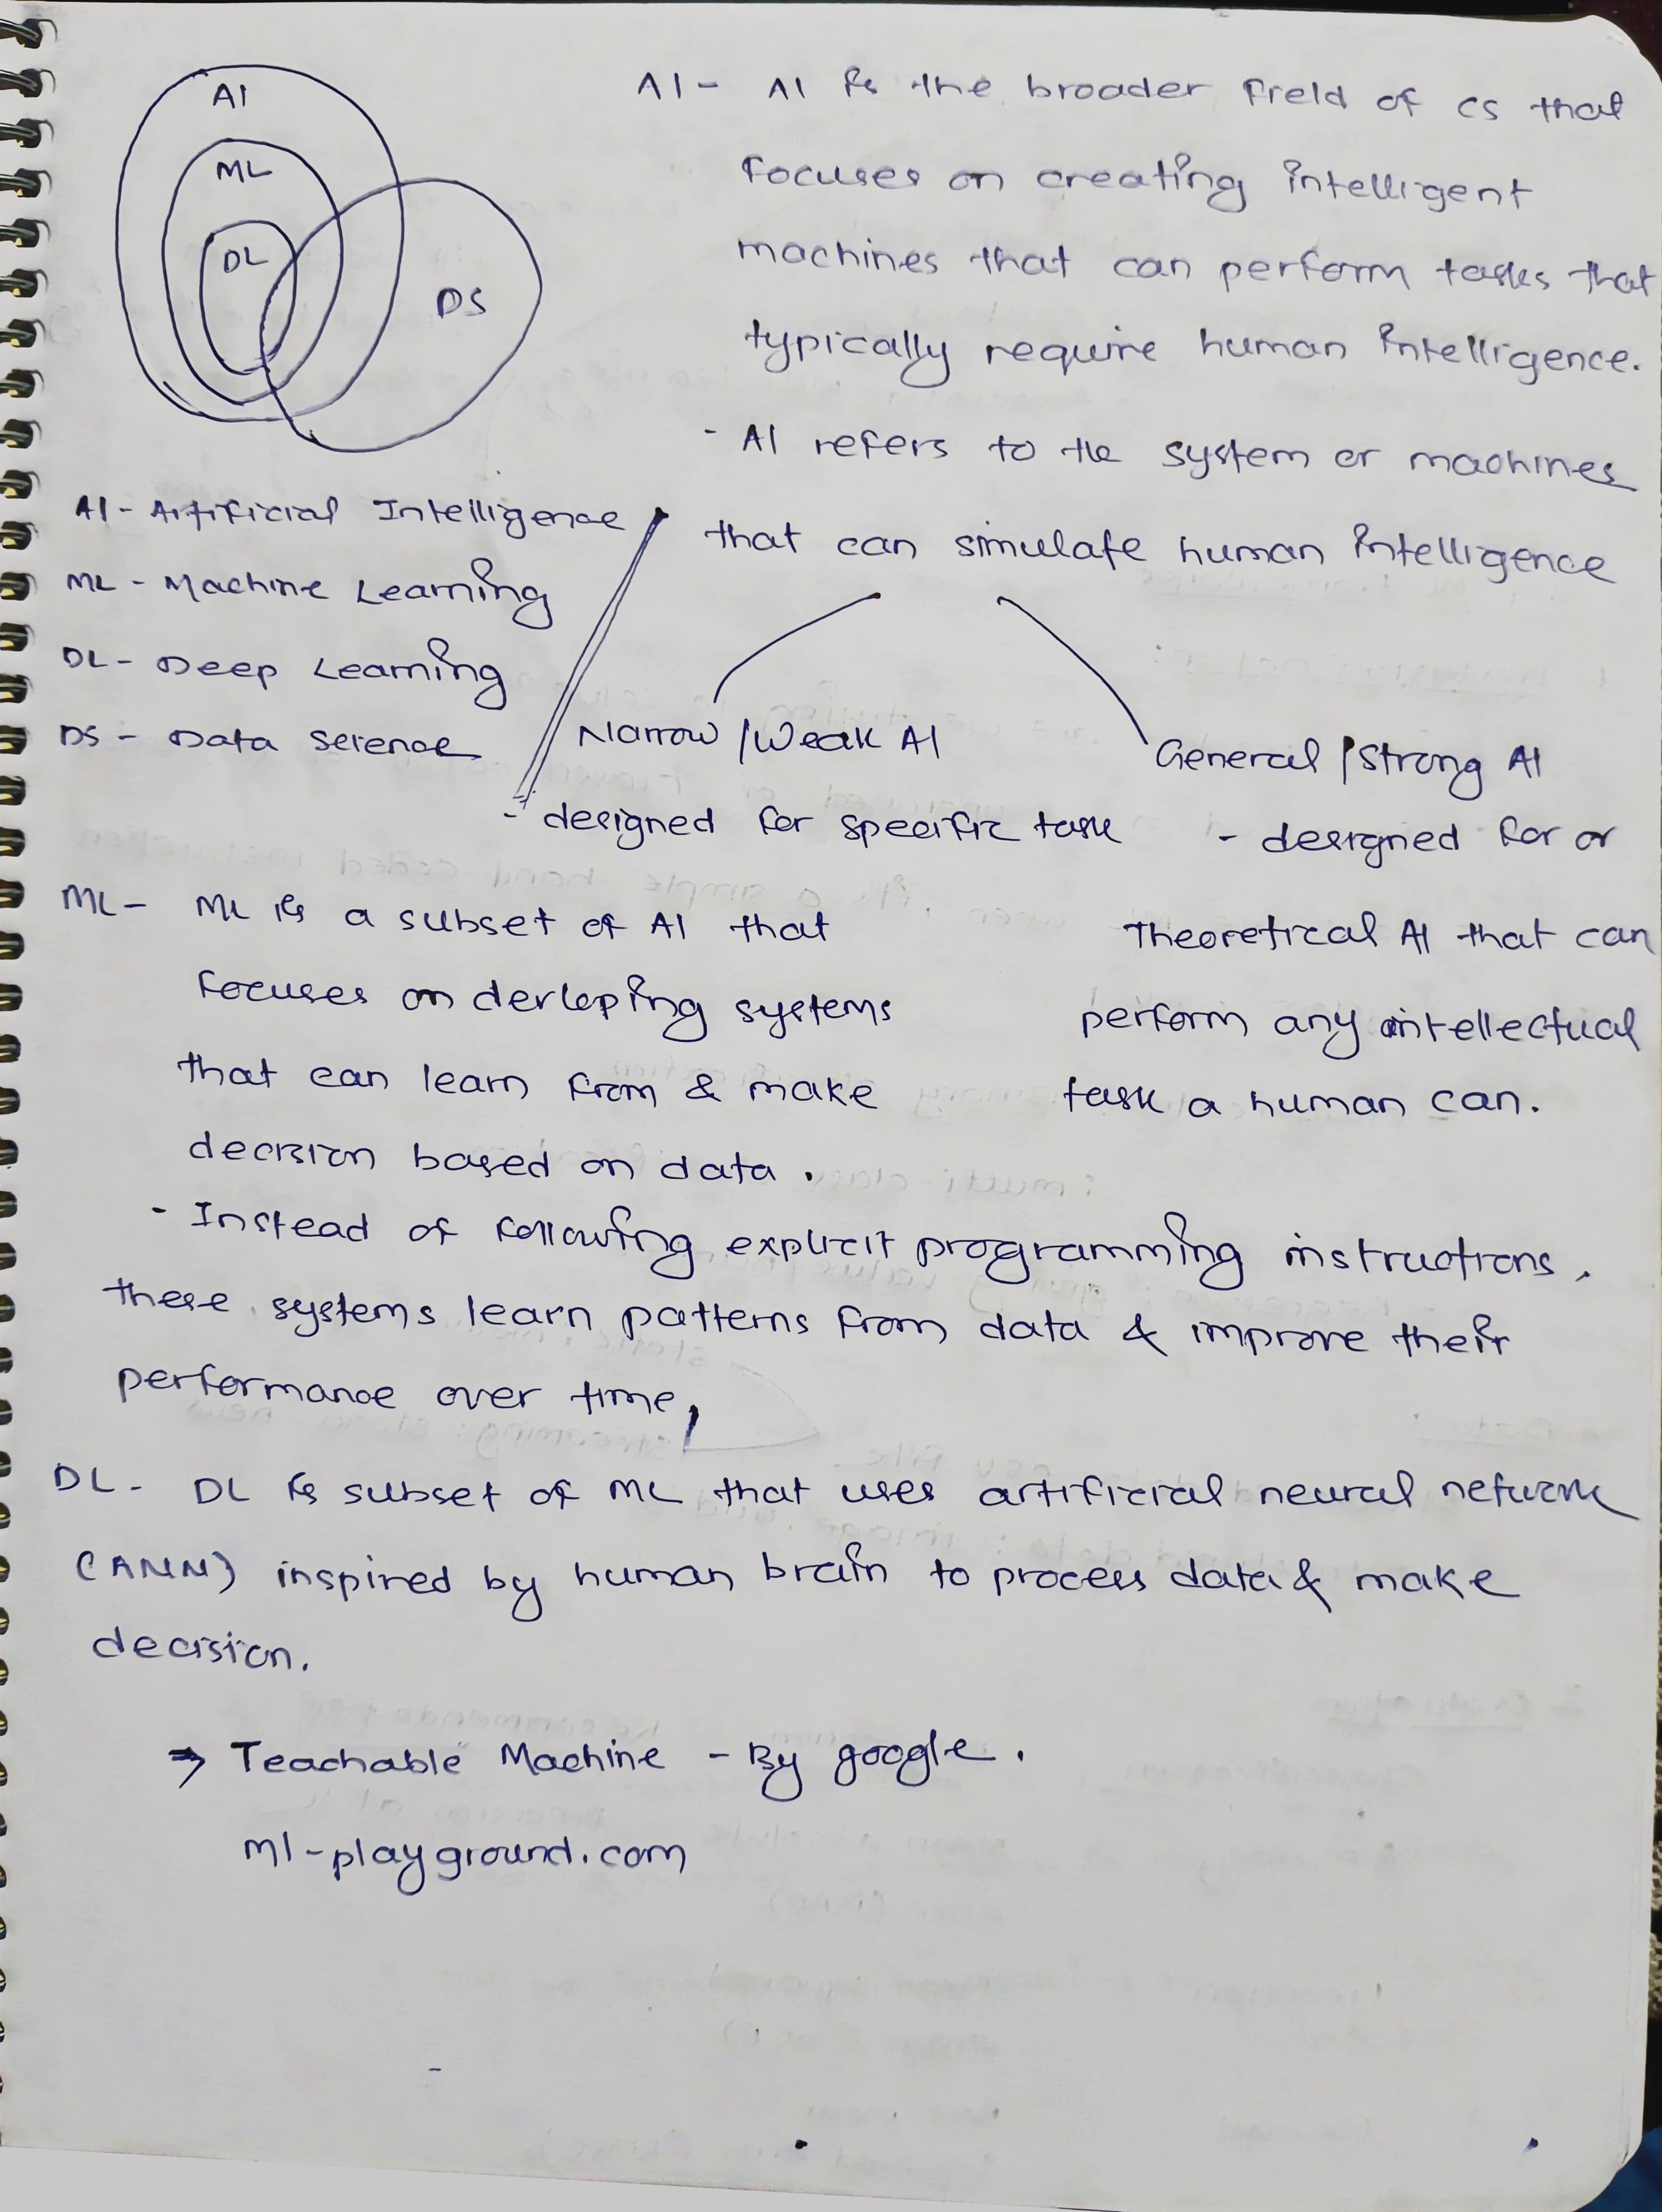 AI
ML
DL
DS
AI - Artificial Intelligence
ML - Machine Learning
DL - Deep Learning
DS - Data Science
AI - AI is the broader field of CS that
focuses on creating intelligent
machines that can perform tasks that
typically require human intelligence.
- AI refers to the system or machines
that can simulate human intelligence
Narrow / Weak AI
- designed for specific task
General / Strong AI
- designed for or
Theoretical AI that can
perform any intellectual
task a human can.
ML - ML is a subset of AI that
focuses on derleping systems
that can learn from & make
decision based on data.
- Instead of following explicit programming instructions,
these systems learn patterns from data & improve their
performance over time,
DL - DL is subset of ML that uses artificial neural network
(ANN) inspired by human brain to process data & make
decision.
⇒ Teachable Machine - By google.
ml-playground.com